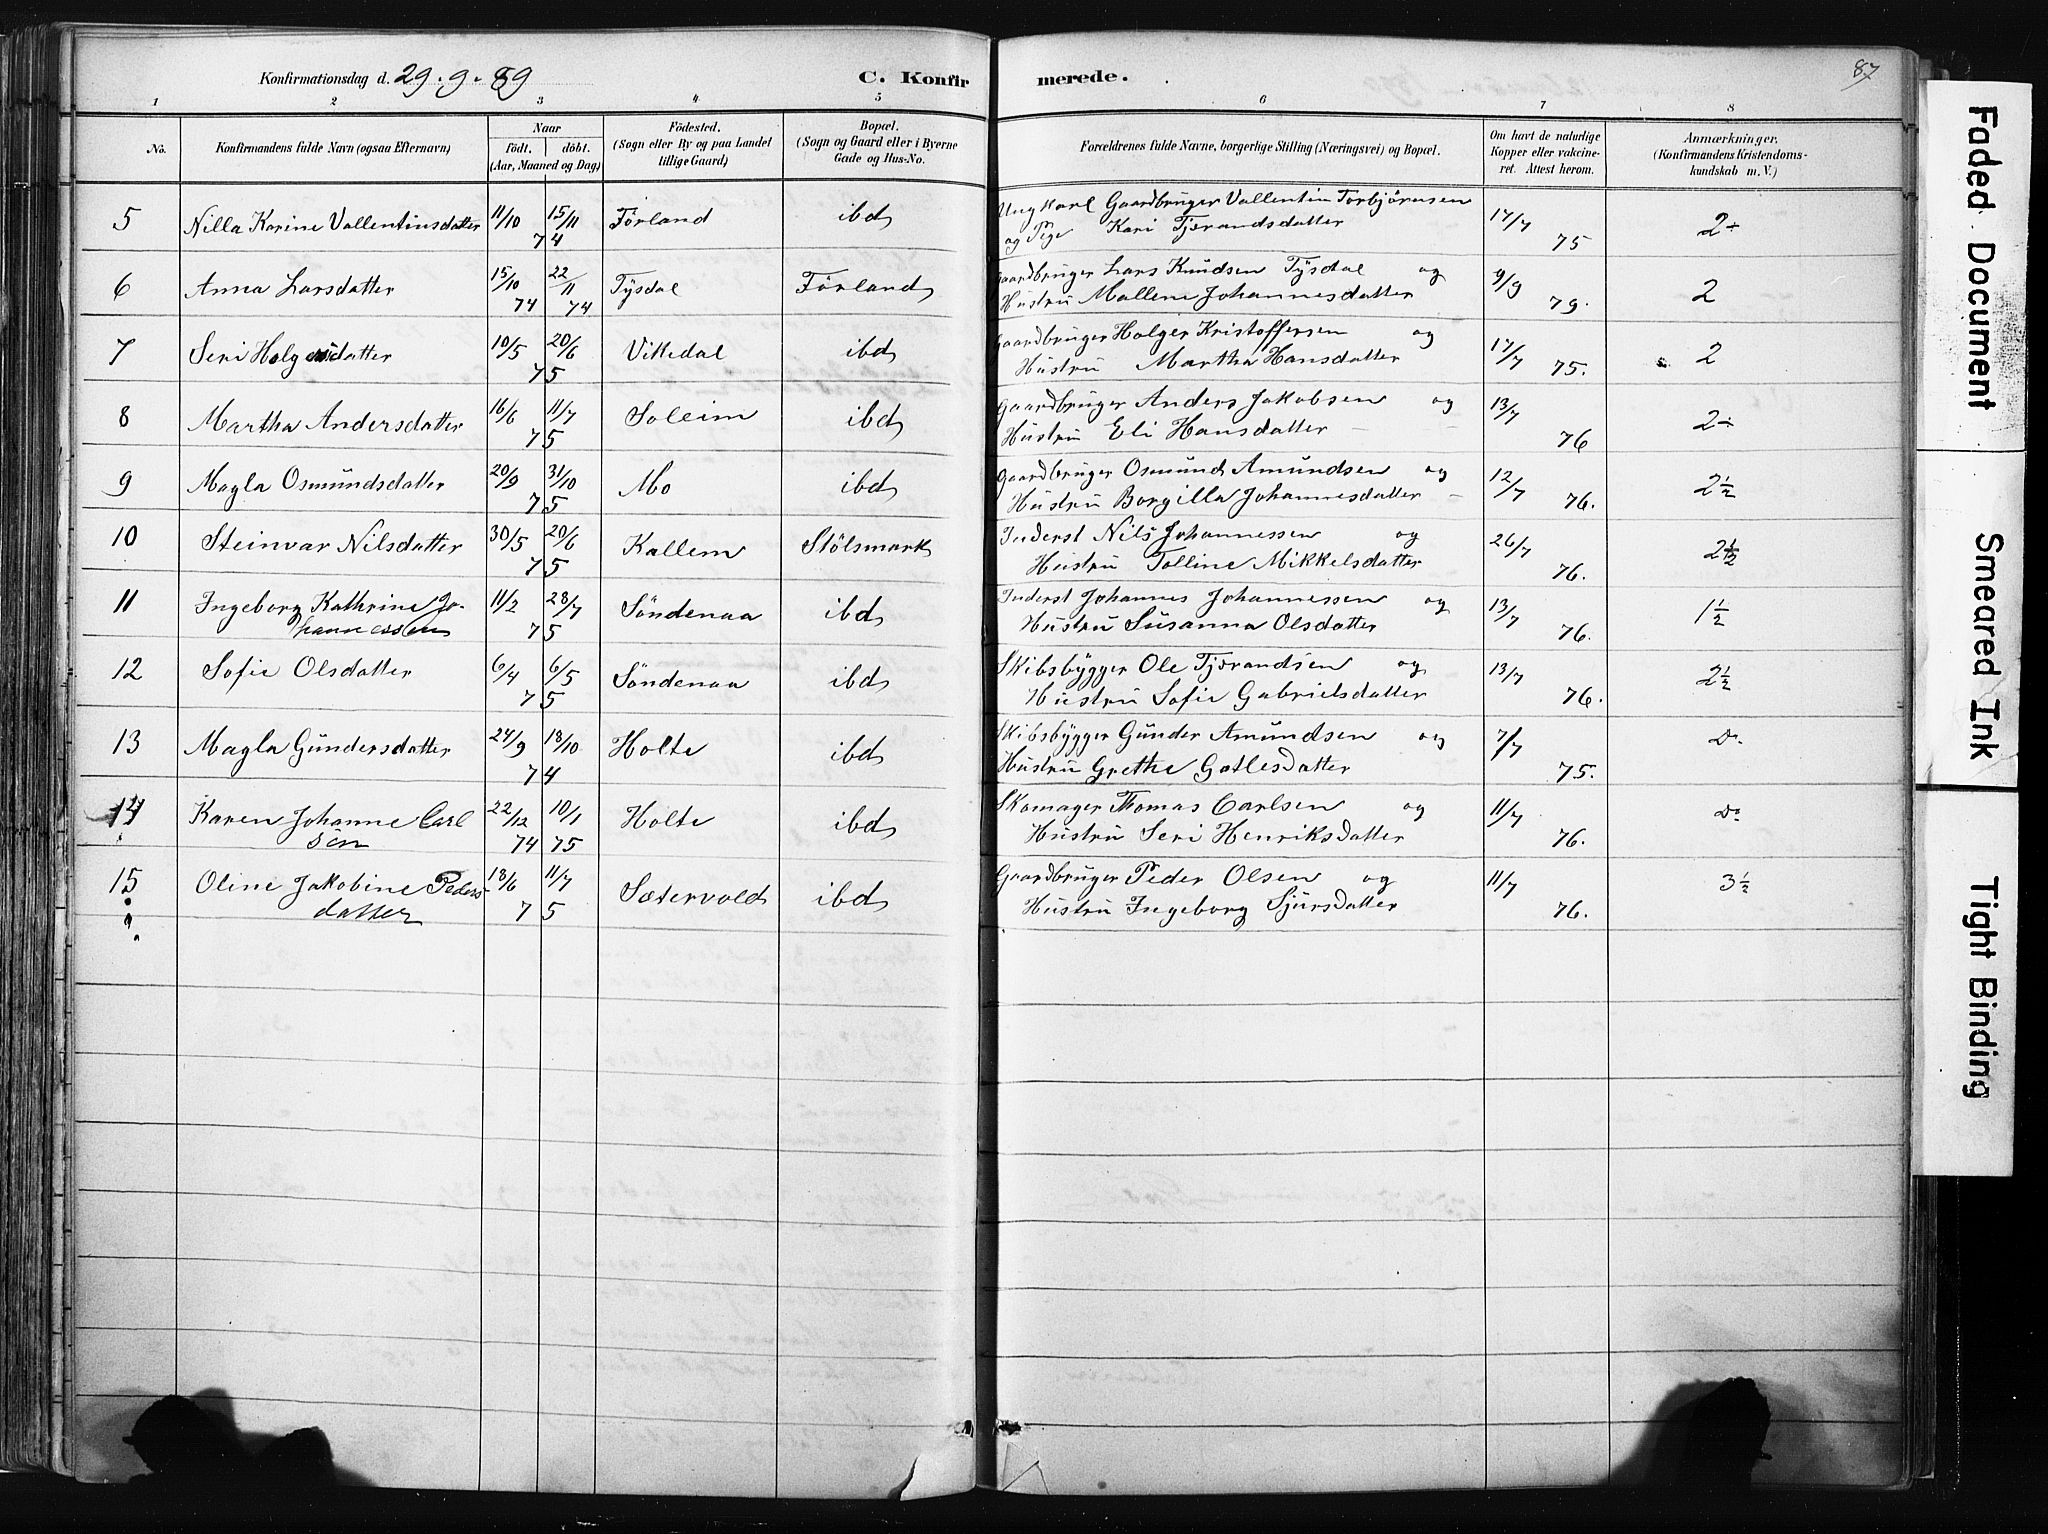 Konfirmationsdag d. 29-9-89 C. Konfirmerede. 87
1 2 3 4 5 6 7 8
No. Konfirmandens fulde Navn (ogsaa Efternavn) Naar Födt. döbt. (Aar, Maaned og Dag) Födested. (Sogn eller By og paa Landet tillige Gaard) Bopæl. (Sogn og Gaard eller i Byerne Gade og Hus-No. Forældrenes fulde Navne, borgerlige Stilling (Næringsvei) og Bopæl. Om havt de naturlige Kopper eller vakcineret. Attest herom. Anmærkninger. (Konfirmandens Kristendomskundskab m. V.)
5 Nilla Karine Vallentinsdatter 11/10 15/11 74 Förland ibd Ungkarl Gaardbruger Vallentin Torbjörnsen
og Pige Kari Tjerandsdatter 17/7 75 2÷
6 Anna Larsdatter 15/10 74 22/11 74 Tysdal Förland Gaardbruger Lars Knudsen Tysdal og
Hustru Mallene Johannesdatter 9/9 79. 2
7 Seri Holgersdatter 10/5 20/6 75 Vittedal ibd Gaardbruger Holger Kristoffersen og
Hustru Martha Hansdatter 17/7 75. 2
8 Martha Andersdatter 16/6 11/7 75 Soleim ibd Gaardbruger Anders Jakobsen og
Hustru Eli Hansdatter 13/7 76 2÷
9 Magla Osmundsdatter 20/9 31/10 75 Mo ibd Gaardbruger Osmund Amundsen og
Hustru Borgilla Johannesdatter 12/7 76. 2½
10 Steinvar Nilsdatter 30/5 20/6 75 Kallem Stölsmark Inderst Nils Johannessen og
Hustru Tolline Mikkelsdatter 26/7 76. 2½
11 Ingeborg Kathrine Jo-
hannessen 11/2 28/7 75 Söndenaa ibd Inderst Johannes Johannessen og
Hustru Susanna Olsdatter 13/7 76. 1½
12 Sofie Olsdatter 6/4 6/5 75 Söndenaa ibd Skibsbygger Ole Tjerandsen og
Hustru Sofie Gabrielsdatter 13/7 76. 2½
13 Magla Gundersdatter 24/9 18/10 74 Holte ibd Skibsbygger Gunder Amundsen og
Hustru Grethe Gotlesdatter 7/7 75. Do
14 Karen Johanne Carl
sen 22/12 74 10/1 75 Holte ibd Skomager Thomas Carlsen og
Hustru Seri Henriksdatter 11/7 76. Do
15 Oline Jakobine Peders-
datter 18/6 11/7 75 Sætervold ibd Gaardbruger Peder Olsen og
Hustru Ingeborg Sjursdatter 11/7 76. 3½
Faded Document
Smeared Ink
Tight Binding